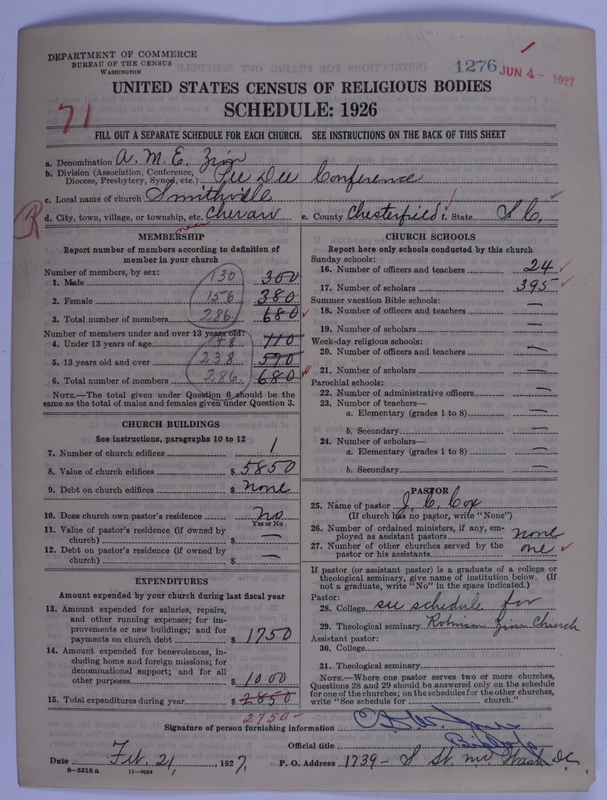 DEPARTMENT OF COMMERCE
BUREAU OF THE CENSUS
WASHINGTON
1276 JUN 4 - 1927
UNITED STATES CENSUS OF RELIGIOUS BODIES
SCHEDULE: 1926
71
FILL OUT A SEPARATE SCHEDULE FOR EACH CHURCH. SEE INSTRUCTIONS ON THE BACK OF THIS SHEET
a. Denomination A. M. E. Zion
b. Division (Association, Conference, Diocese, Presbytery, Synod, etc.) Pee Dee Conference
c. Local name of church Smithville
d. City, town, village, or township, etc. near Cheraw e. County Chesterfield f. State S C,
R
MEMBERSHIP
Report number of members according to definition of
member in your church
Number of members, by sex:
1. Male 130 300
2. Female 156 380
3. Total number of members 286 680
Number of members under and over 13 years old:
4. Under 13 years of age 48 110
5. 13 years old and over 238 570
6. Total number of members 286 680
NOTE.—The total given under Question 6 should be the
same as the total of males and females given under Question 3.
CHURCH BUILDINGS
See instructions, paragraphs 10 to 12
7. Number of church edifices 1
8. Value of church edifices $ 5850
9. Debt on church edifices $ none
10. Does church own pastor's residence no
Yes or No
11. Value of pastor's residence (if owned by
church) $ —
12. Debt on pastor's residence (if owned by
church) $ —
EXPENDITURES
Amount expended by your church during last fiscal year
13. Amount expended for salaries, repairs,
and other running expenses; for im-
provements or new buildings; and for
payments on church debt $ 1750
14. Amount expended for benevolences, in-
cluding home and foreign missions; for
denominational support; and for all
other purposes $ 1000
15. Total expenditures during year $ 2850
2750
CHURCH SCHOOLS
Report here only schools conducted by this church
Sunday schools:
16. Number of officers and teachers 24
17. Number of scholars 395
Summer vacation Bible schools:
18. Number of officers and teachers —
19. Number of scholars —
Week-day religious schools:
20. Number of officers and teachers —
21. Number of scholars —
Parochial schools:
22. Number of administrative officers —
23. Number of teachers—
a. Elementary (grades 1 to 8) —
b. Secondary —
24. Number of scholars—
a. Elementary (grades 1 to 8) —
b. Secondary —
PASTOR
25. Name of pastor J. C. Cox
(If church has no pastor, write "None")
26. Number of ordained ministers, if any, em-
ployed as assistant pastors none
27. Number of other churches served by the
pastor or his assistants one
If pastor (or assistant pastor) is a graduate of a college or
theological seminary, give name of institution below. (If
not a graduate, write "No" in the space indicated.)
Pastor:
28. College see schedule for
29. Theological seminary Robinson Zion Church
Assistant pastor:
30. College
31. Theological seminary
NOTE.—Where one pastor serves two or more churches,
Questions 28 and 29 should be answered only on the schedule
for one of the churches; on the schedules for the other churches,
write "See schedule for church."
Signature of person furnishing information
Official title
Date Feb. 21, 1927. P. O. Address 1739 - S St. NW Wash DC
8—5518a 11—9054